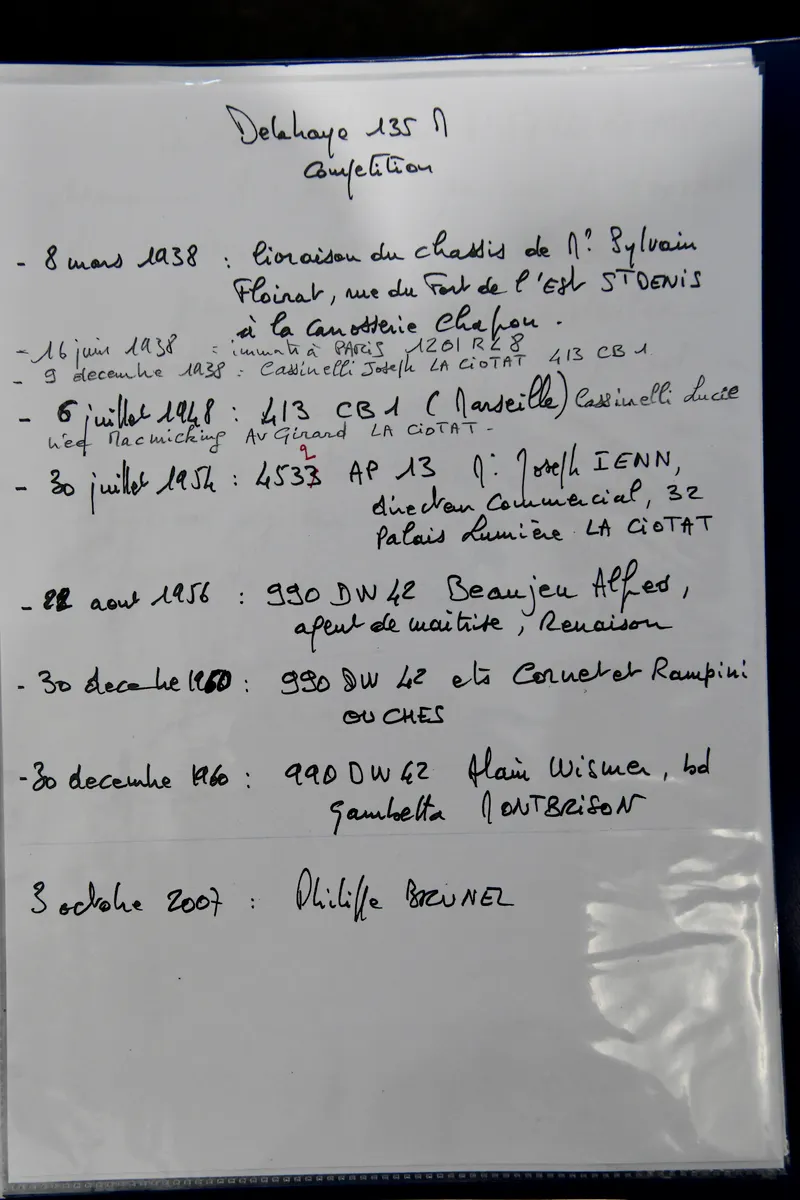 Delahaye 135 M
Competition
- 8 mars 1938 : livraison du chassis de Mr Sylvain
Floirat, rue du Fort de l'Est ST DENIS
à la carrosserie Chapon.
- 16 juin 1938 : immat à PARIS 1201 RL8
- 9 decembre 1938 : Cassinelli Joseph LA CIOTAT 413 CB 1
- 6 juillet 1948 : 413 CB 1 (Marseille) Cassinelli Lucie
née Macmicking Av Girard LA CIOTAT -
2
- 30 juillet 1954 : 4533 AP 13 Mr Joseph IENN,
directeur Commercial, 32
Palais Lumière LA CIOTAT
- 22 aout 1956 : 990 DW 42 Beaujeu Alfred,
agent de maitrise, Renaison
- 30 decembre 1960 : 990 DW 42 ets Cornet et Rampini
OUCHES
- 30 decembre 1960 : 990 DW 42 Alain Wismer, bd
Gambetta MONTBRISON
3 octobre 2007 : Philippe BRUNEL